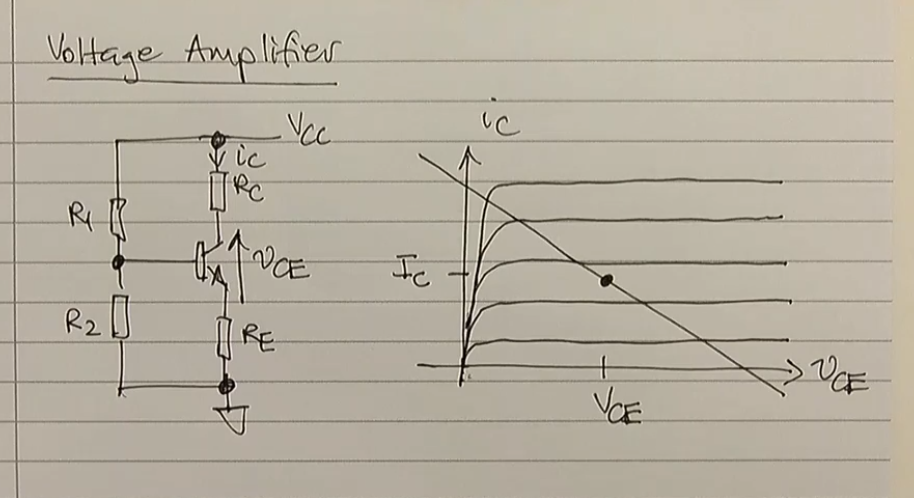 Voltage Amplifier
VCC
iC
RC
R1
vCE
R2
RE
iC
IC
vCE
VCE